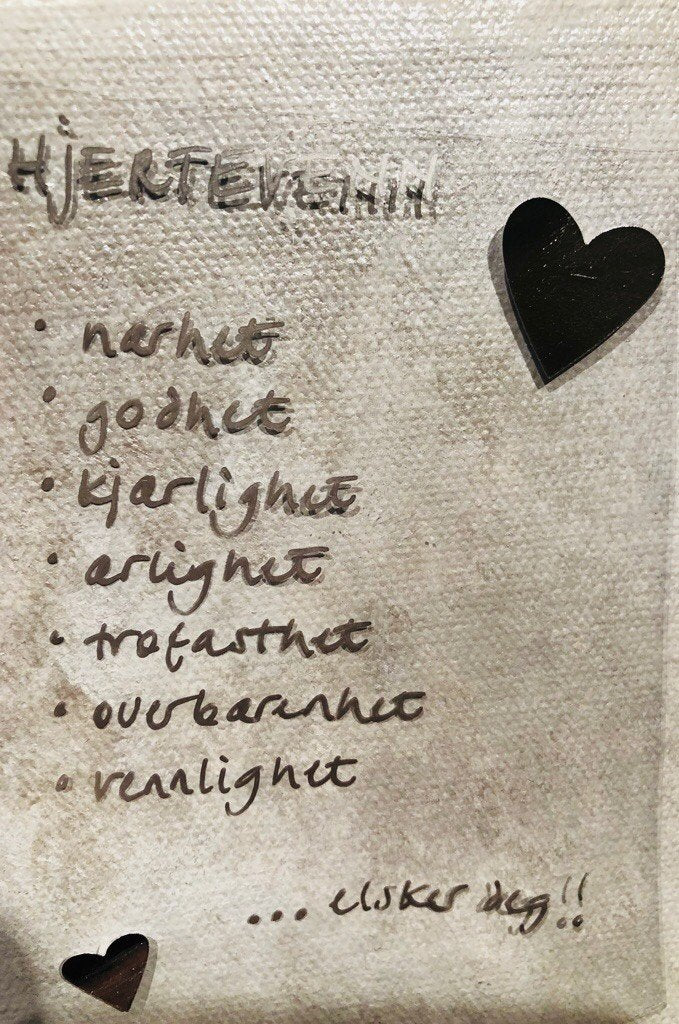 HJERTEVENN
• nærhet
• godhet
• kjærlighet
• ærlighet
• trofasthet
• overbærenhet
• vennlighet
... elsker deg!!